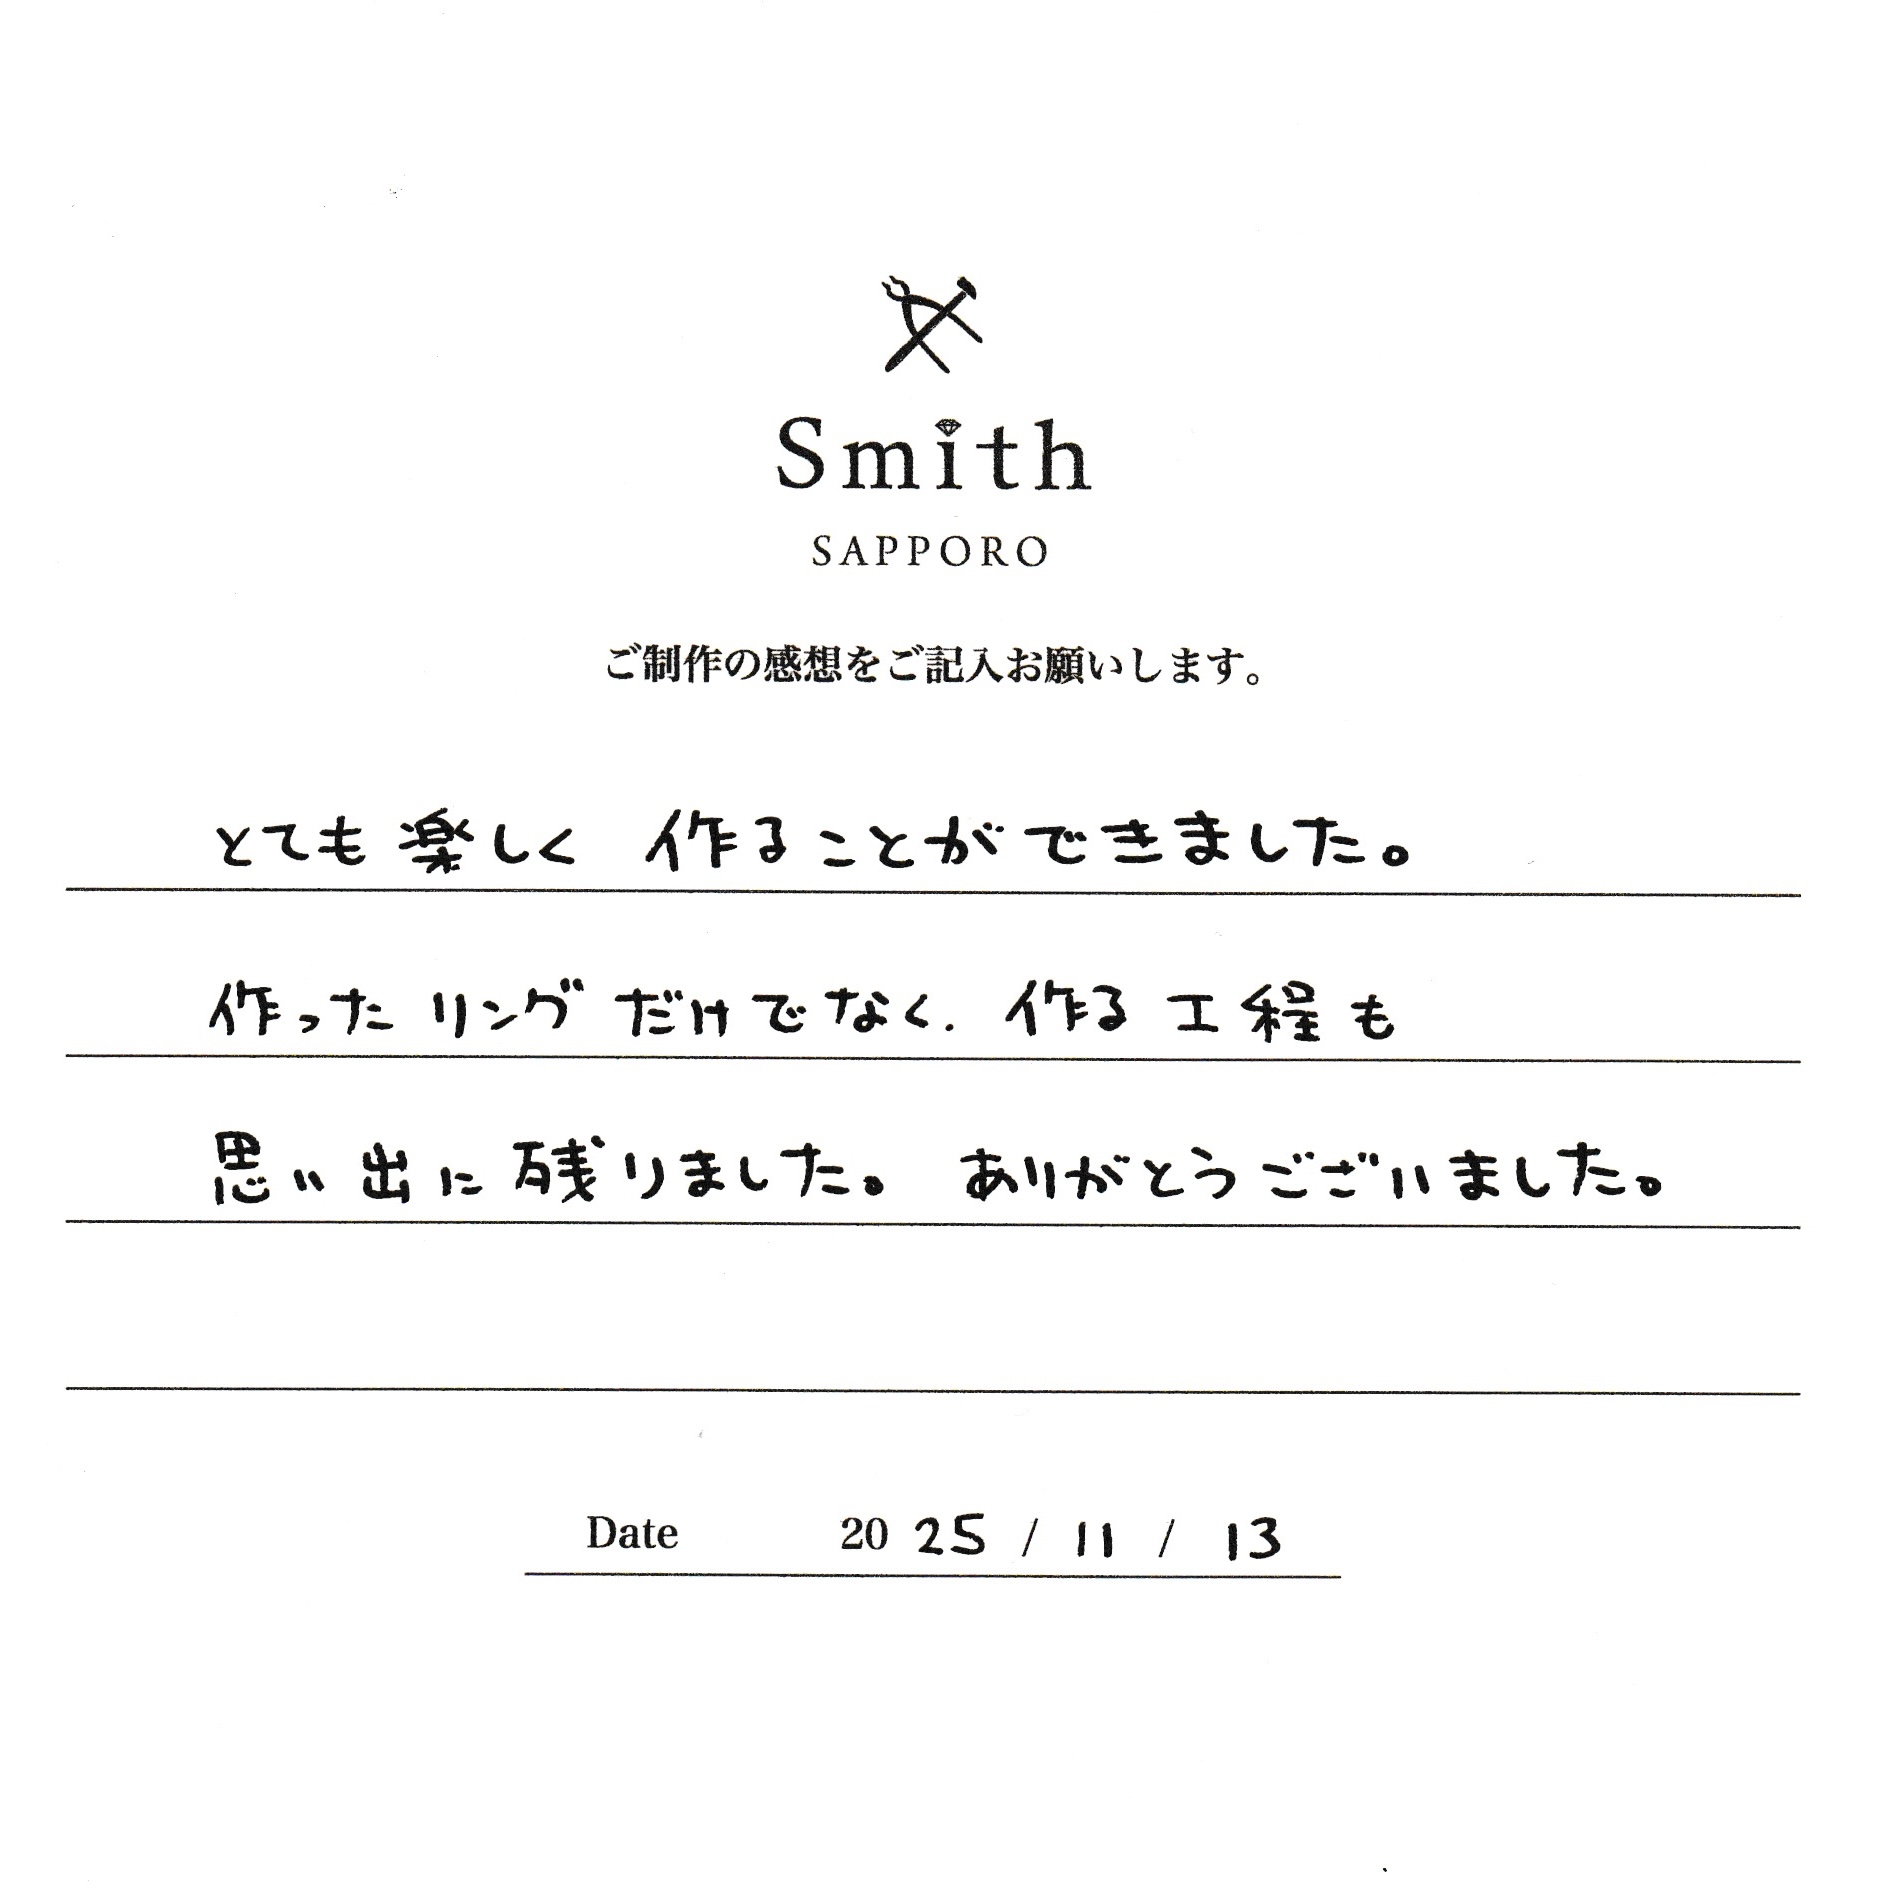 Smith
SAPPORO
ご制作の感想をご記入お願いします。
とても楽しく 作ることができました。
作った リング だけでなく. 作る 工程も
思い出に残りました。 ありがとうございました。
Date 2025 / 11 / 13